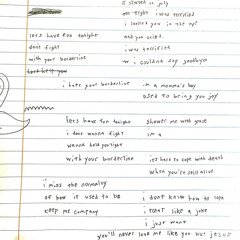 it started in july
one night i was terrified
i learned you in the spot
lets have fun tonight and you cried.
dont fight i was terrified
with your borderline i couldnt say goodbye
dont help you
i hate your borderline im a momma's boy
used to bring you joy
lets have fun tonight shower me with grace
i dont wanna fight im a
wanna hold you tight
with your borderline its hard to cope with death
when you're still alive
i miss the normalcy
of how is used to be i dont know how to cope
keep me company i treat like a joke
i just want
you'll never love me like you but jesus